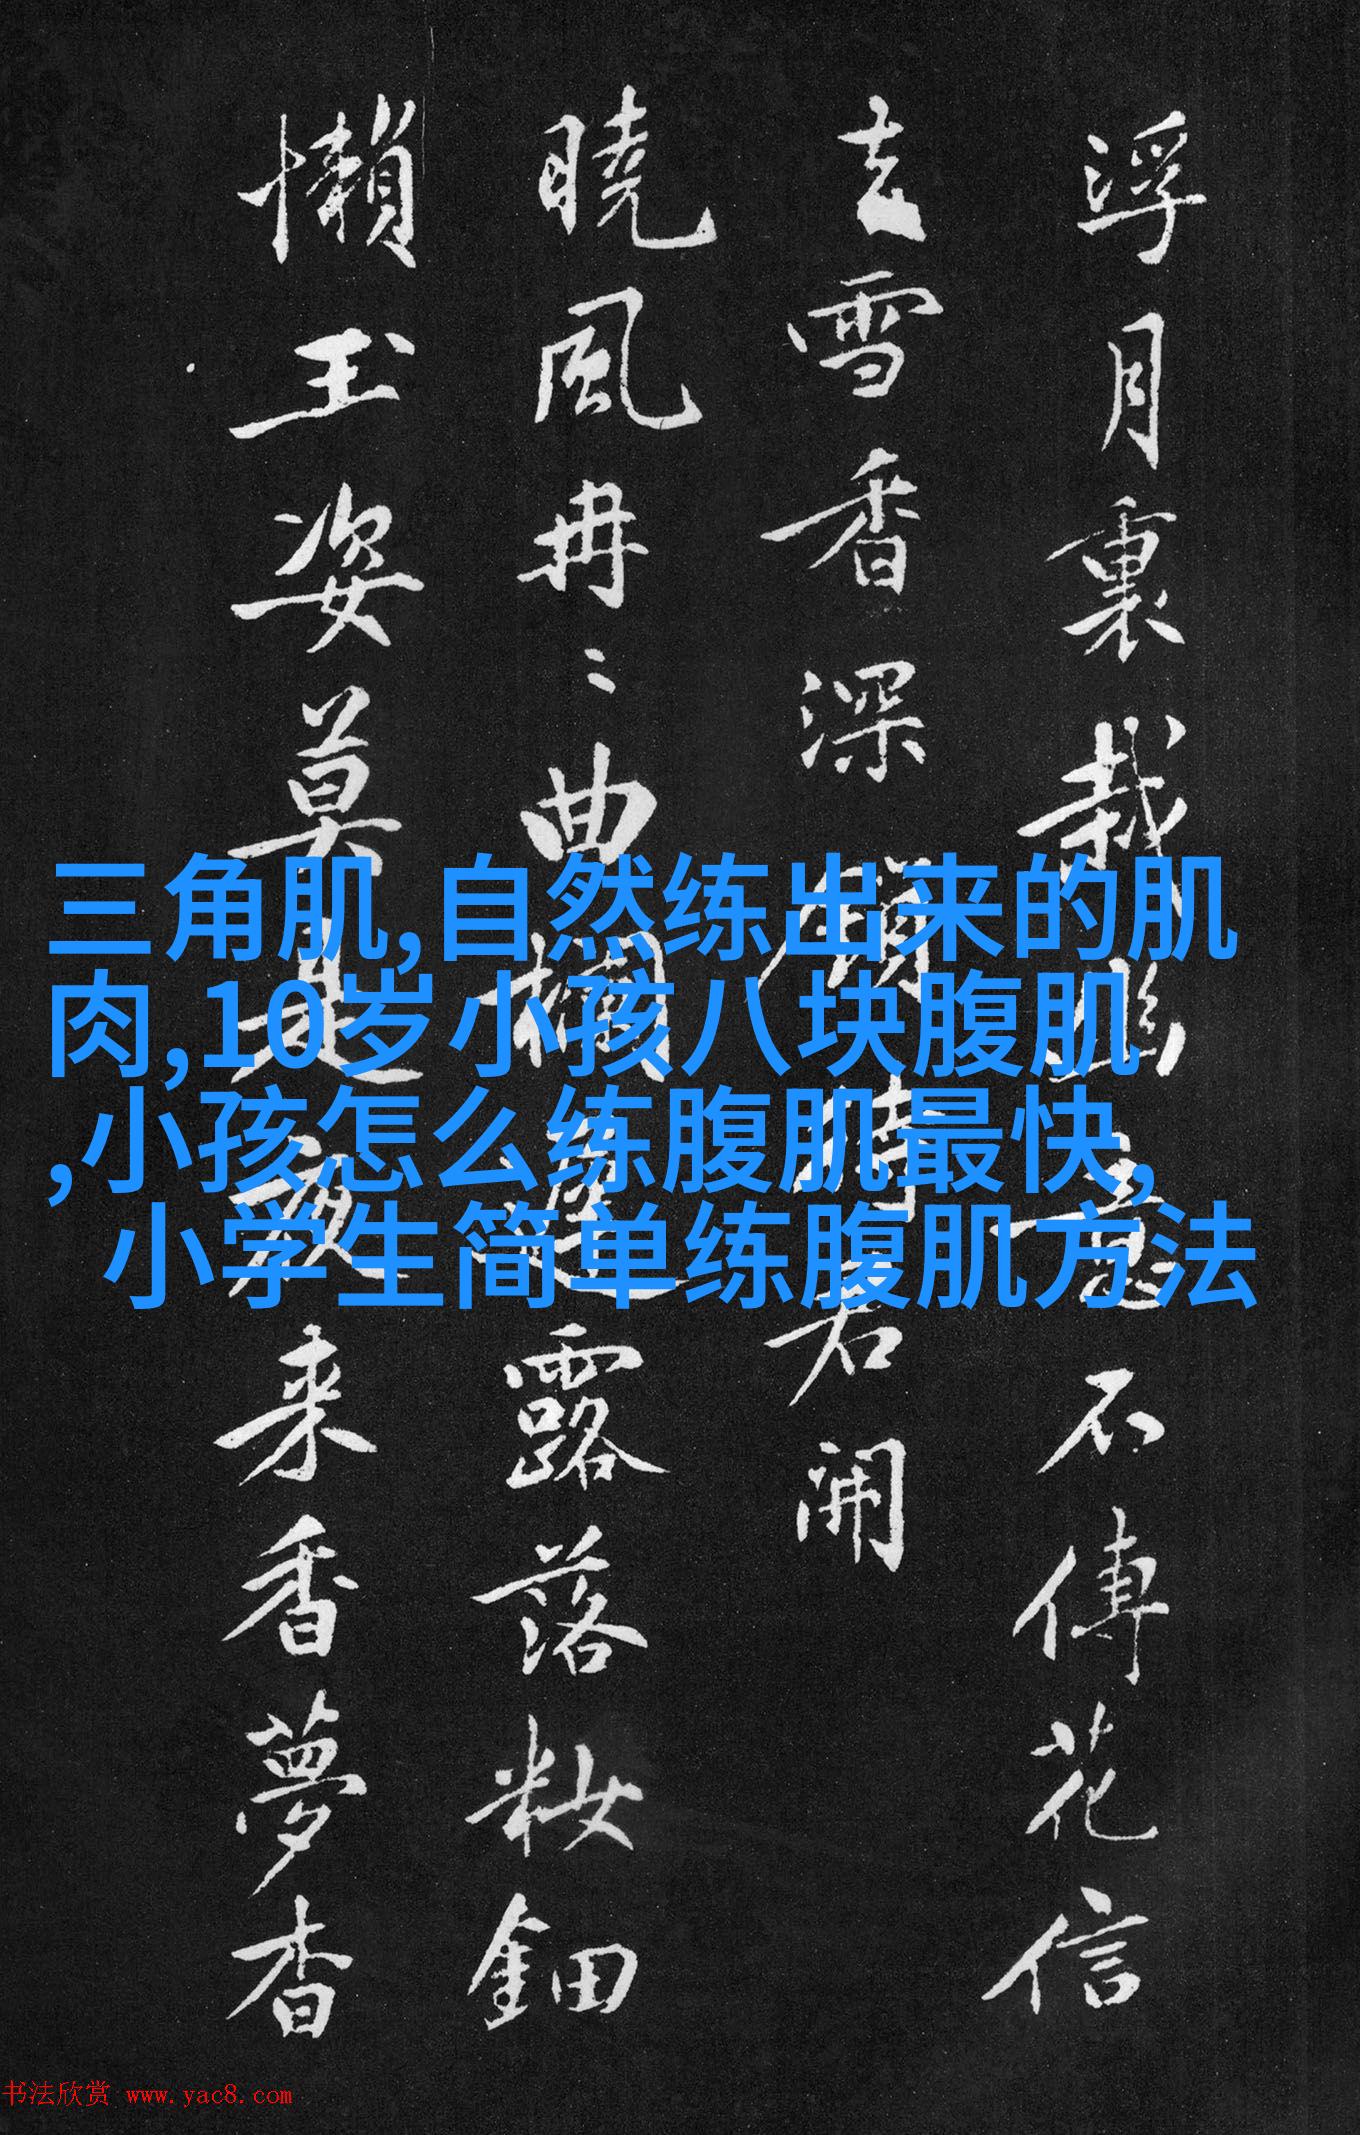 浮月裏栽
不傳花信
去雪香深
時君開
曉風冉〻曲欄
露落妝鈿
懶玉姿莫是
來香夢杳
三角肌,自然练出来的肌
肉,10岁小孩八块腹肌
,小孩怎么练腹肌最快,
小学生简单练腹肌方法
书法欣赏 www.yac8.com